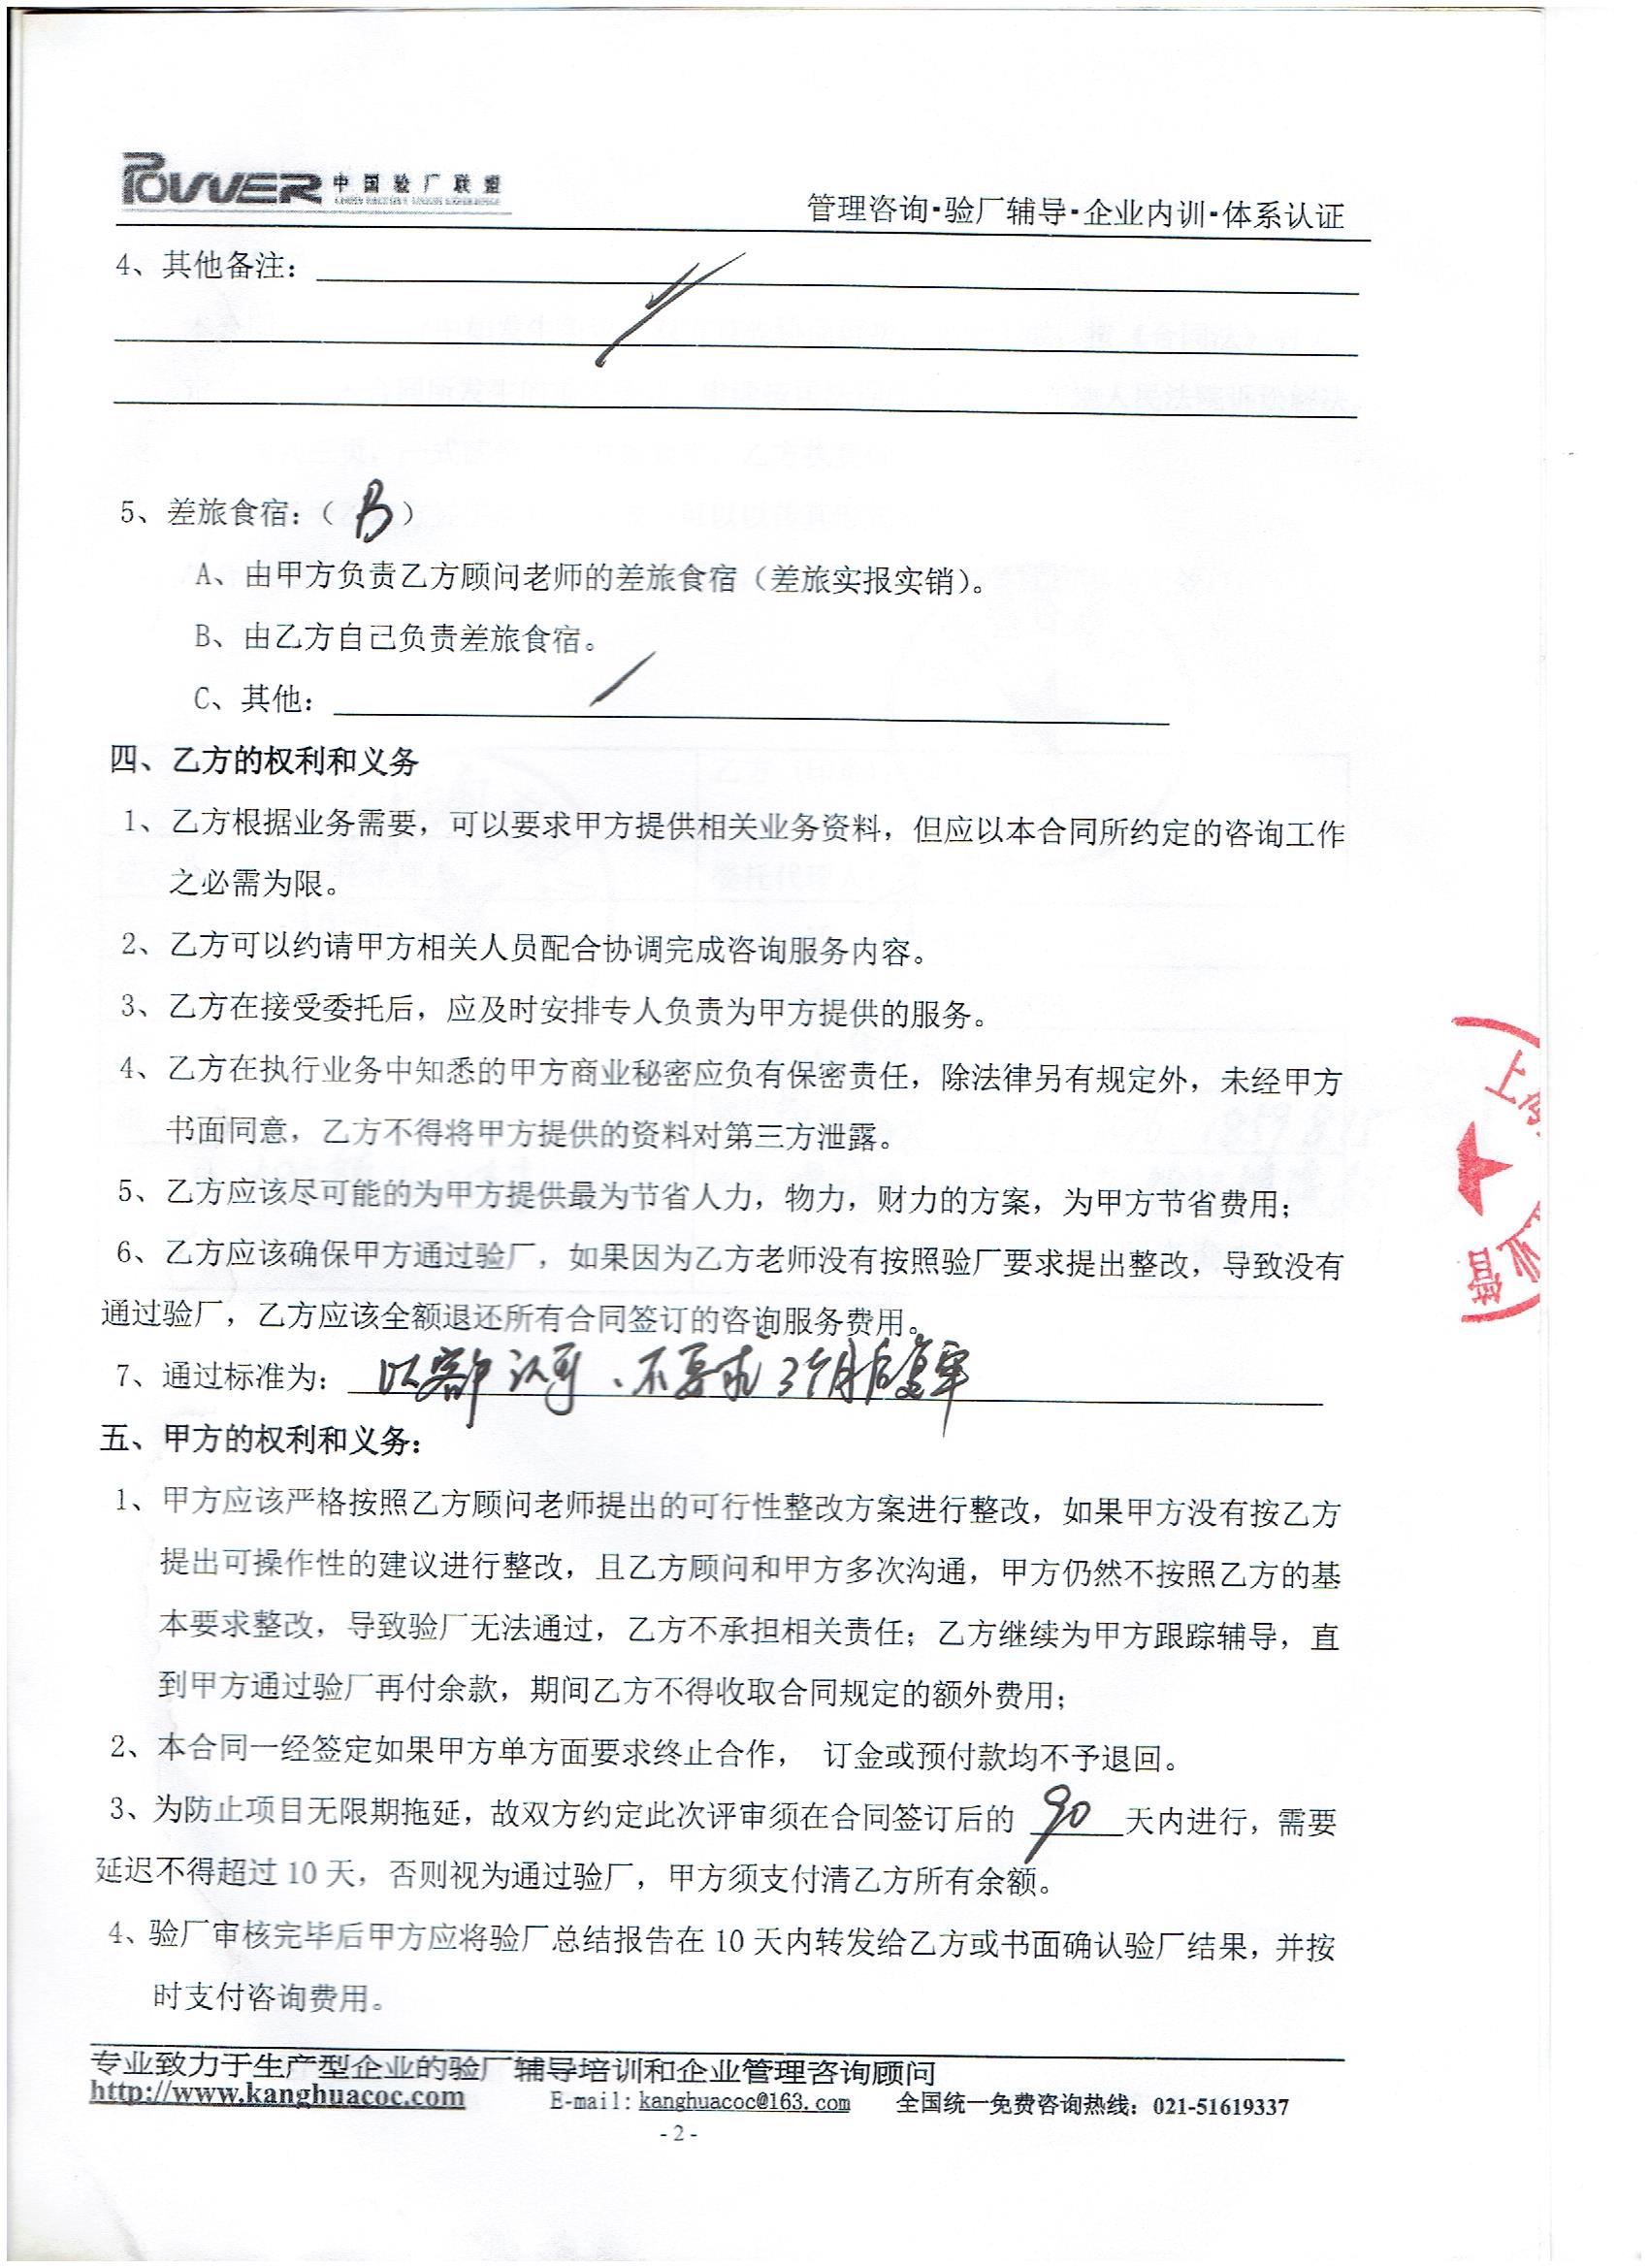 POWER 中国验厂联盟
管理咨询·验厂辅导·企业内训·体系认证
4、其他备注：
5、差旅食宿：（B）
A、由甲方负责乙方顾问老师的差旅食宿（差旅实报实销）。
B、由乙方自己负责差旅食宿。
C、其他：
四、乙方的权利和义务
1、乙方根据业务需要，可以要求甲方提供相关业务资料，但应以本合同所约定的咨询工作
之必需为限。
2、乙方可以约请甲方相关人员配合协调完成咨询服务内容。
3、乙方在接受委托后，应及时安排专人负责为甲方提供的服务。
4、乙方在执行业务中知悉的甲方商业秘密应负有保密责任，除法律另有规定外，未经甲方
书面同意，乙方不得将甲方提供的资料对第三方泄露。
5、乙方应该尽可能的为甲方提供最为节省人力，物力，财力的方案，为甲方节省费用；
6、乙方应该确保甲方通过验厂，如果因为乙方老师没有按照验厂要求提出整改，导致没有
通过验厂，乙方应该全额退还所有合同签订的咨询服务费用。
7、通过标准为：以客户认可、不要求3个月后复审
五、甲方的权利和义务：
1、甲方应该严格按照乙方顾问老师提出的可行性整改方案进行整改，如果甲方没有按乙方
提出可操作性的建议进行整改，且乙方顾问和甲方多次沟通，甲方仍然不按照乙方的基
本要求整改，导致验厂无法通过，乙方不承担相关责任；乙方继续为甲方跟踪辅导，直
到甲方通过验厂再付余款，期间乙方不得收取合同规定的额外费用；
2、本合同一经签定如果甲方单方面要求终止合作， 订金或预付款均不予退回。
3、为防止项目无限期拖延，故双方约定此次评审须在合同签订后的 90 天内进行，需要
延迟不得超过 10 天，否则视为通过验厂，甲方须支付清乙方所有余额。
4、验厂审核完毕后甲方应将验厂总结报告在 10 天内转发给乙方或书面确认验厂结果，并按
时支付咨询费用。
上
业
管
专业致力于生产型企业的验厂辅导培训和企业管理咨询顾问
http://www.kanghuacoc.com E-mail：kanghuacoc@163.com 全国统一免费咨询热线：021-51619337
- 2 -